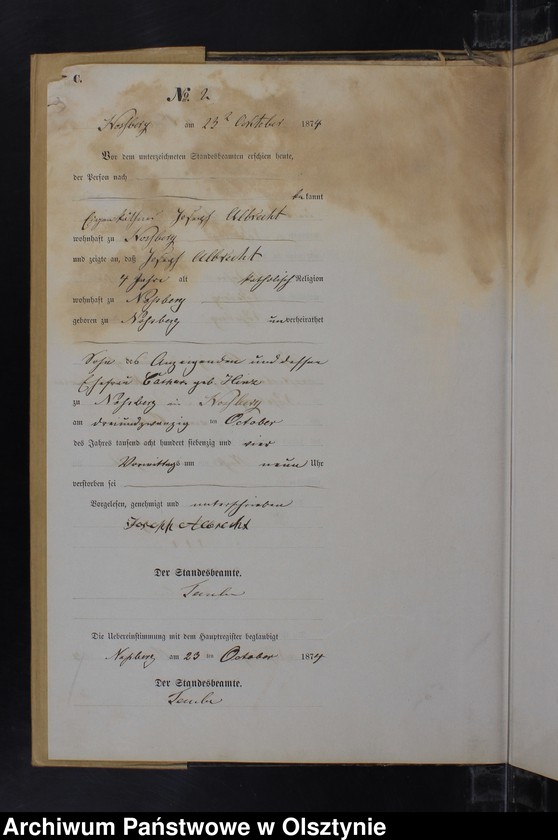 C.
No. 2
Noßberg am 23t Oktober 1874
Vor dem unterzeichneten Standesbeamten erschien heute,
der Person nach
bekannt
Eigenkäthner Joseph Albrecht
wohnhaft zu Noßberg
und zeigte an, daß Joseph Albrecht
4 Jahre alt katholisch Religion
wohnhaft zu Noßberg
geboren zu Noßberg unverheirathet
Sohn des Anzeigenden und dessen
Ehefrau geb.
zu Noßberg in Noßberg
am dreiundzwanzig ten October
des Jahres tausend acht hundert siebenzig und vier
Vormittags um neun Uhr
verstorben sei
Vorgelesen, genehmigt und unterschrieben
Joseph Albrecht
Der Standesbeamte.
Die Uebereinstimmung mit dem Hauptregister beglaubigt
Noßberg am 23 ten October 1874
Der Standesbeamte.
Archiwum Państwowe w Olsztynie